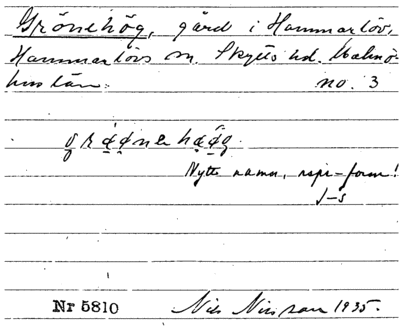 Grönehög, gård i Hammarlöv,
Hammarlövs sn. Skytts hd. Malmö-
hus län. no. 3
Nytt namn, rspr-form!
J-s
Nr 5810 Nils Nilsson 1935.